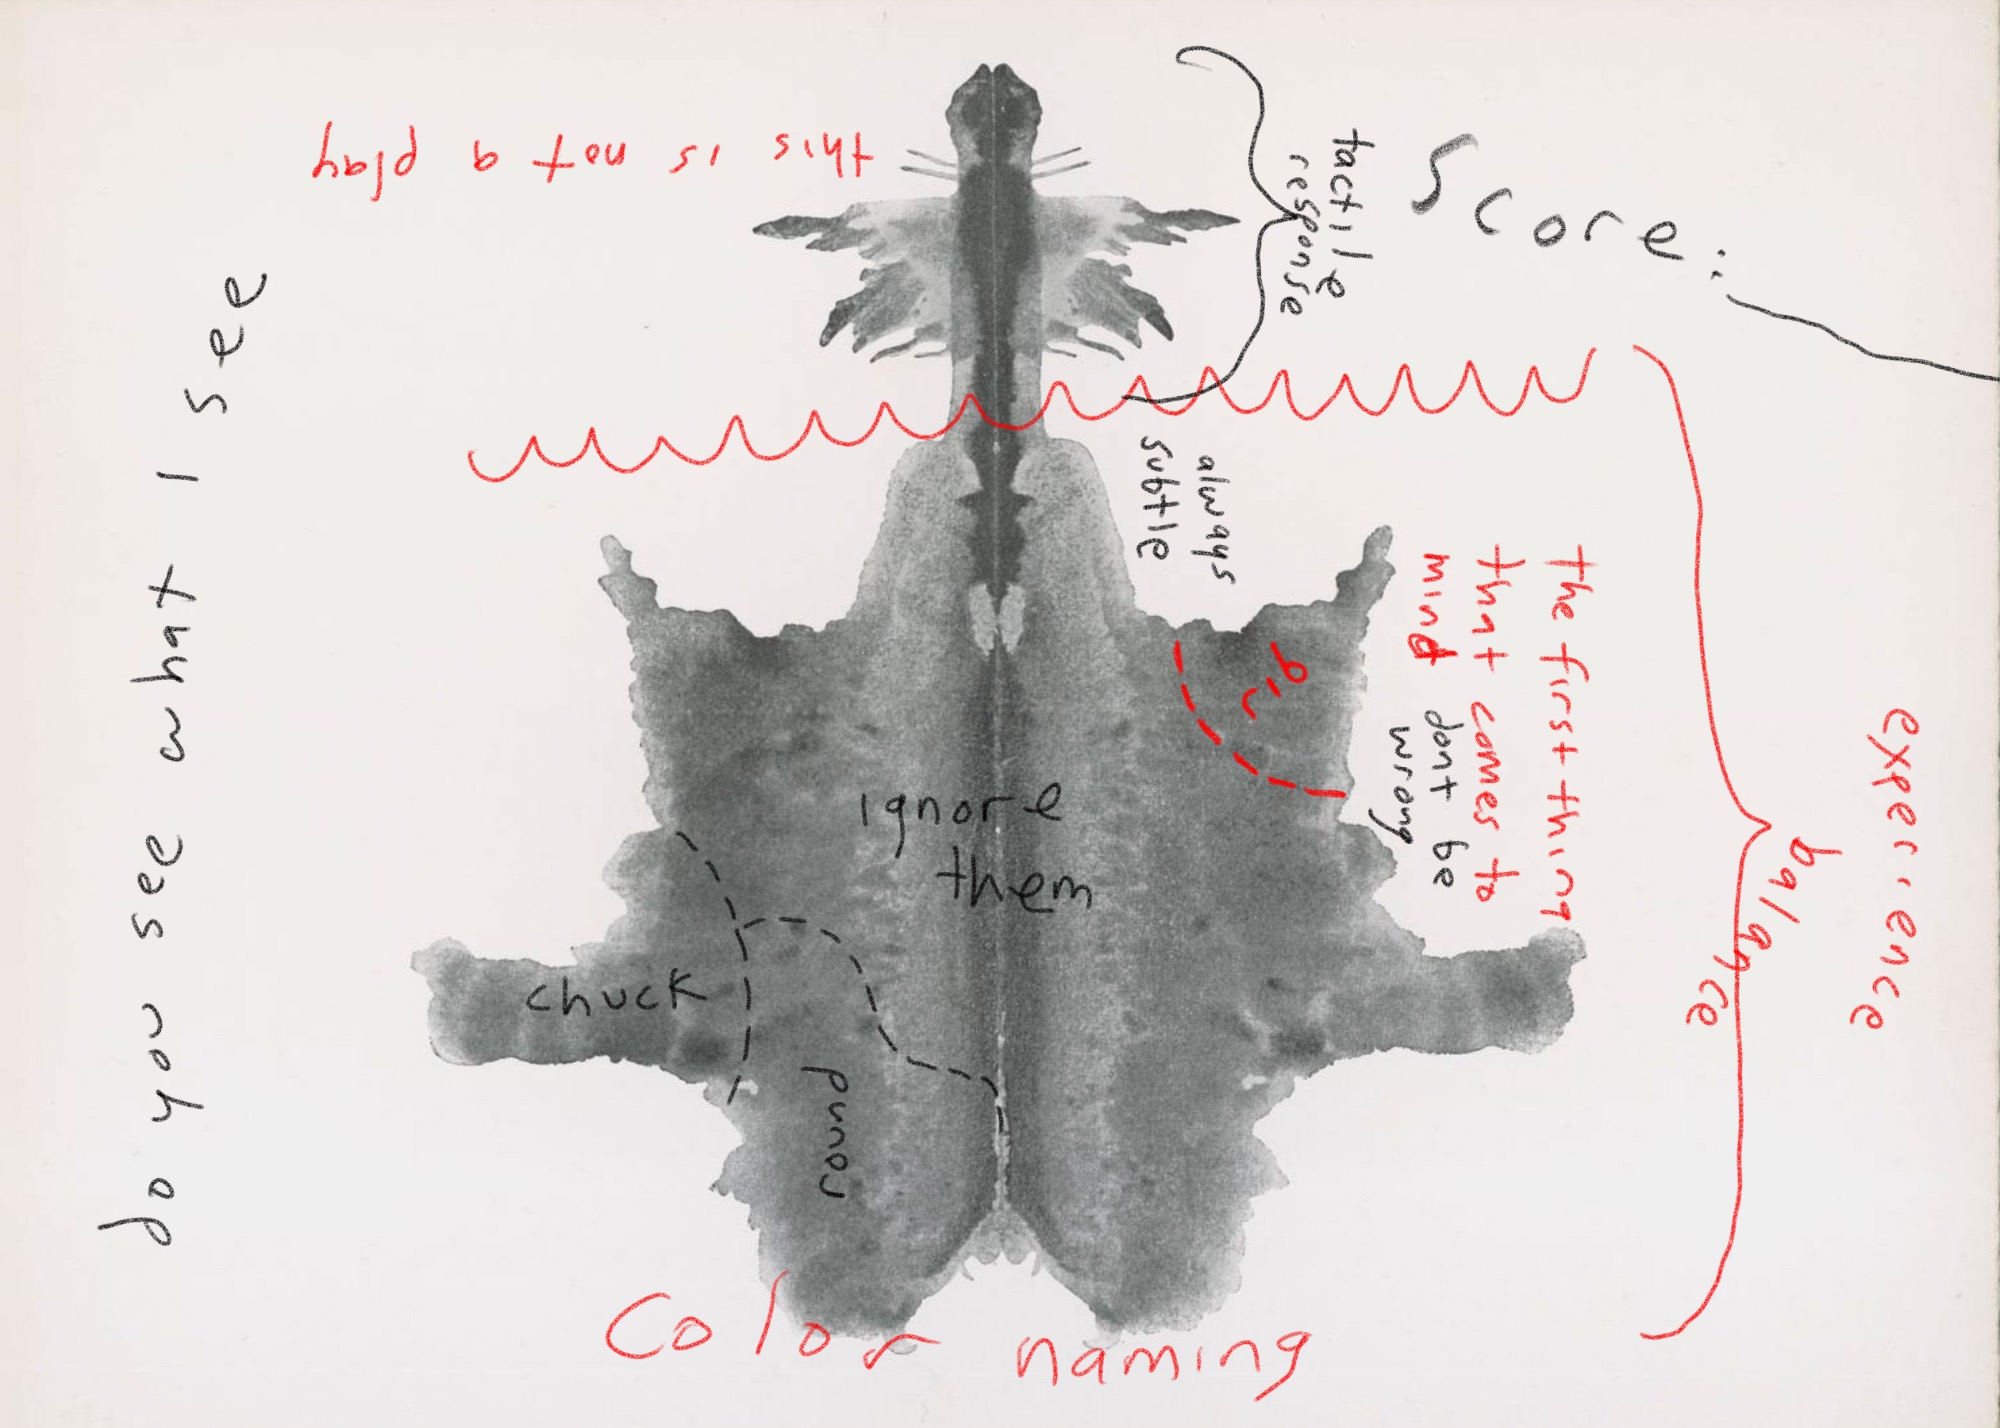 this is not a play
tactile
response
Score:
do you see what I see
always
subtle
the first thing
that comes to
mind
dont be
wrong
rib
experience
balance
ignore
them
chuck
round
Color naming